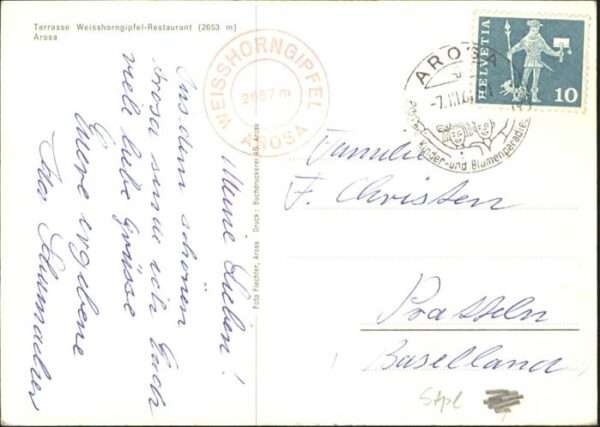 Terrasse Weisshorngipfel-Restaurant (2653 m)
Arosa
WEISSHORNGIPFEL
2657 m
AROSA
AROSA
-7.III.
Kinder-und Blumenparadies
HELVETIA
10
Meine Lieben!
Aus dem schönen
Arosa sende ich Euch
viele liebe Grüsse
Eure ergebene
Ida Schumacher
Foto Flechter, Arosa Druck: Buchdruckerei AG, Arosa
Familie
F. Christen
Pratteln
Baselland
Stpl